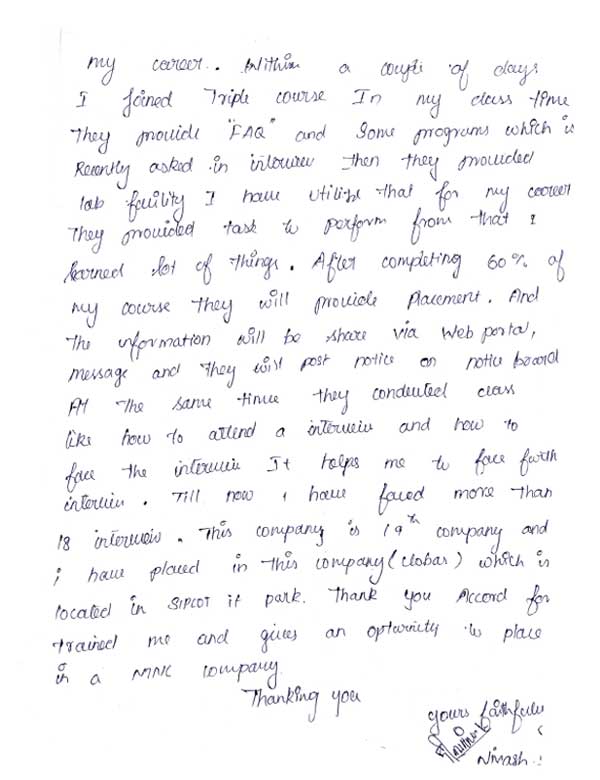 my career. Within a couple of days
I joined Triple course In my class time
They provide "FAQ" and Some programs which is
Recently asked in interview Then they provided
lab facility I have utilize that for my career
They provided task to perform from that I
learned lot of things. After completing 60% of
my course they will provide placement. And
The information will be share via Web portal,
message and they will post notice on notice board
At The same time they conducted class
like how to attend a interview and how to
face the interview It helps me to face
interview. Till now I have faced more than
18 interview. This company is 19th company and
i have placed in this company (clobas) which is
located in SIPCOT it park. Thank you Accord for
trained me and gives an to place
in a MNC company.
Thanking you
yours faithfully